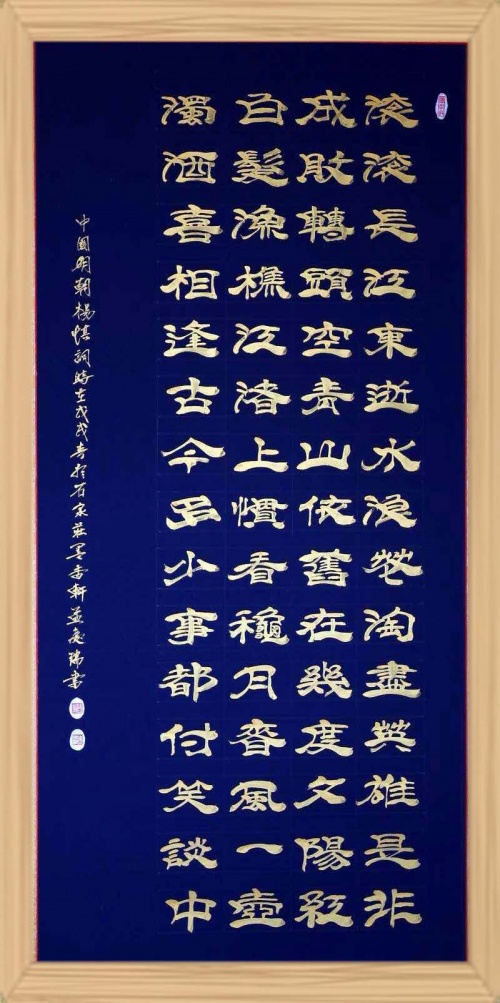 滚滚長江東逝水浪花淘盡英雄是非
成敗轉頭空青山依舊在幾度夕陽紅
白髮漁樵江渚上慣看穐月春風一壺
濁酒喜相逢古今多少事都付笑談中
中國明朝楊慎詞時在戊戌春於石家莊墨香軒孟慶瑞書